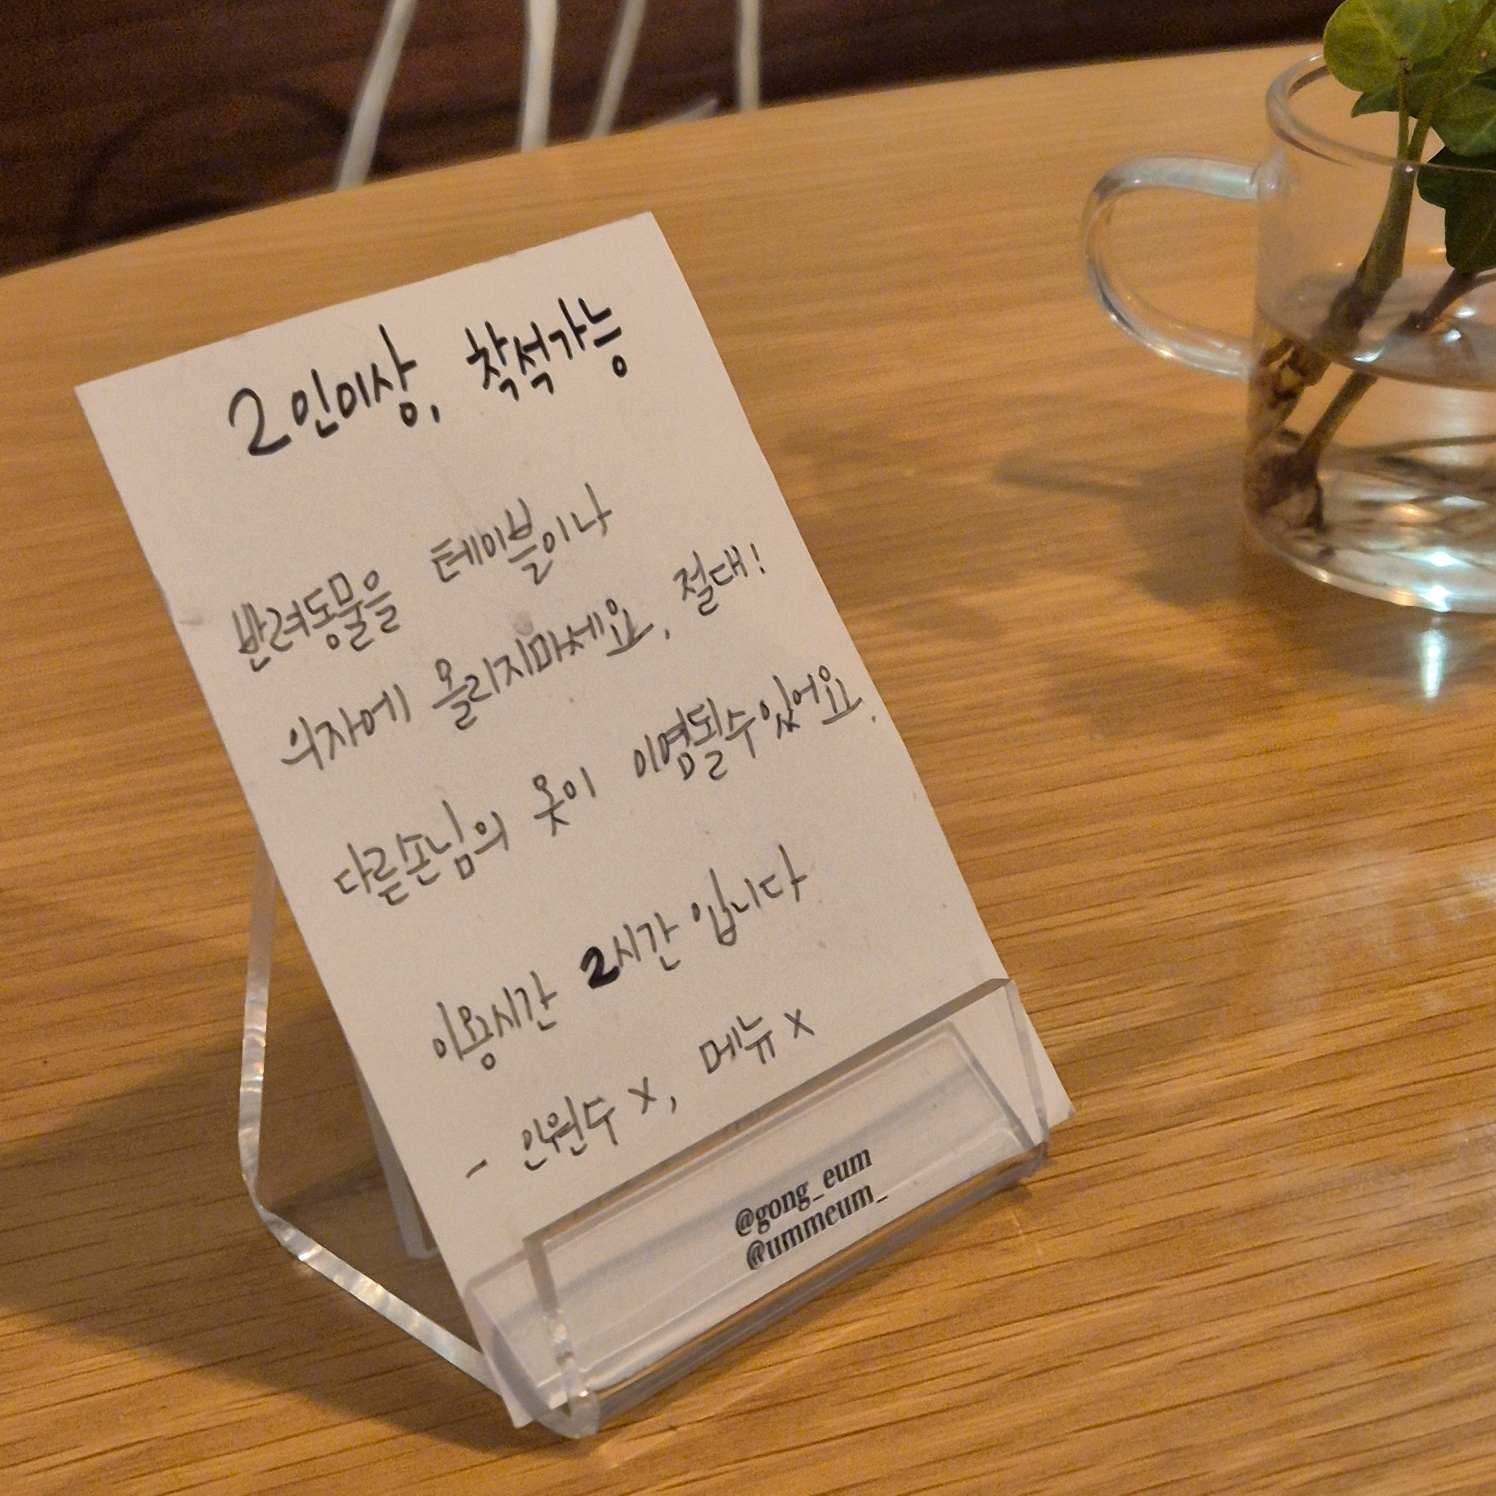 2인이상, 착석가능
반려동물을 테이블이나
의자에 올리지마세요, 절대!
다른손님의 옷이 이염될수있어요.
이용시간 2시간 입니다
- 인원수 x, 메뉴 x
@gong_eum
@ummeum_